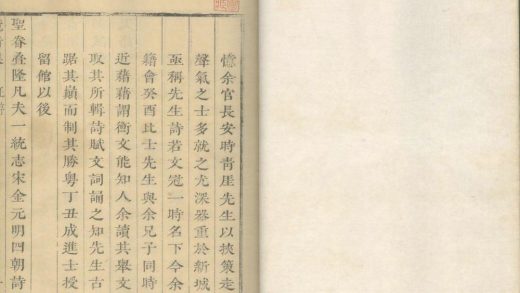 憶余官長安時青厓先生以挾策走
聲氣之士多就之尤深器重於新城
亟稱先生詩若文冠一時名下今余
籍會癸酉比士先生與余兄子同時
近藉藉謂衡文能知人余讀其舉文
取其所輯詩賦文詞誦之知先生古
踞其巔而制其勝粤丁丑成進士授
留館以後
聖眷叠隆凡夫一統志宋金元明四朝詩